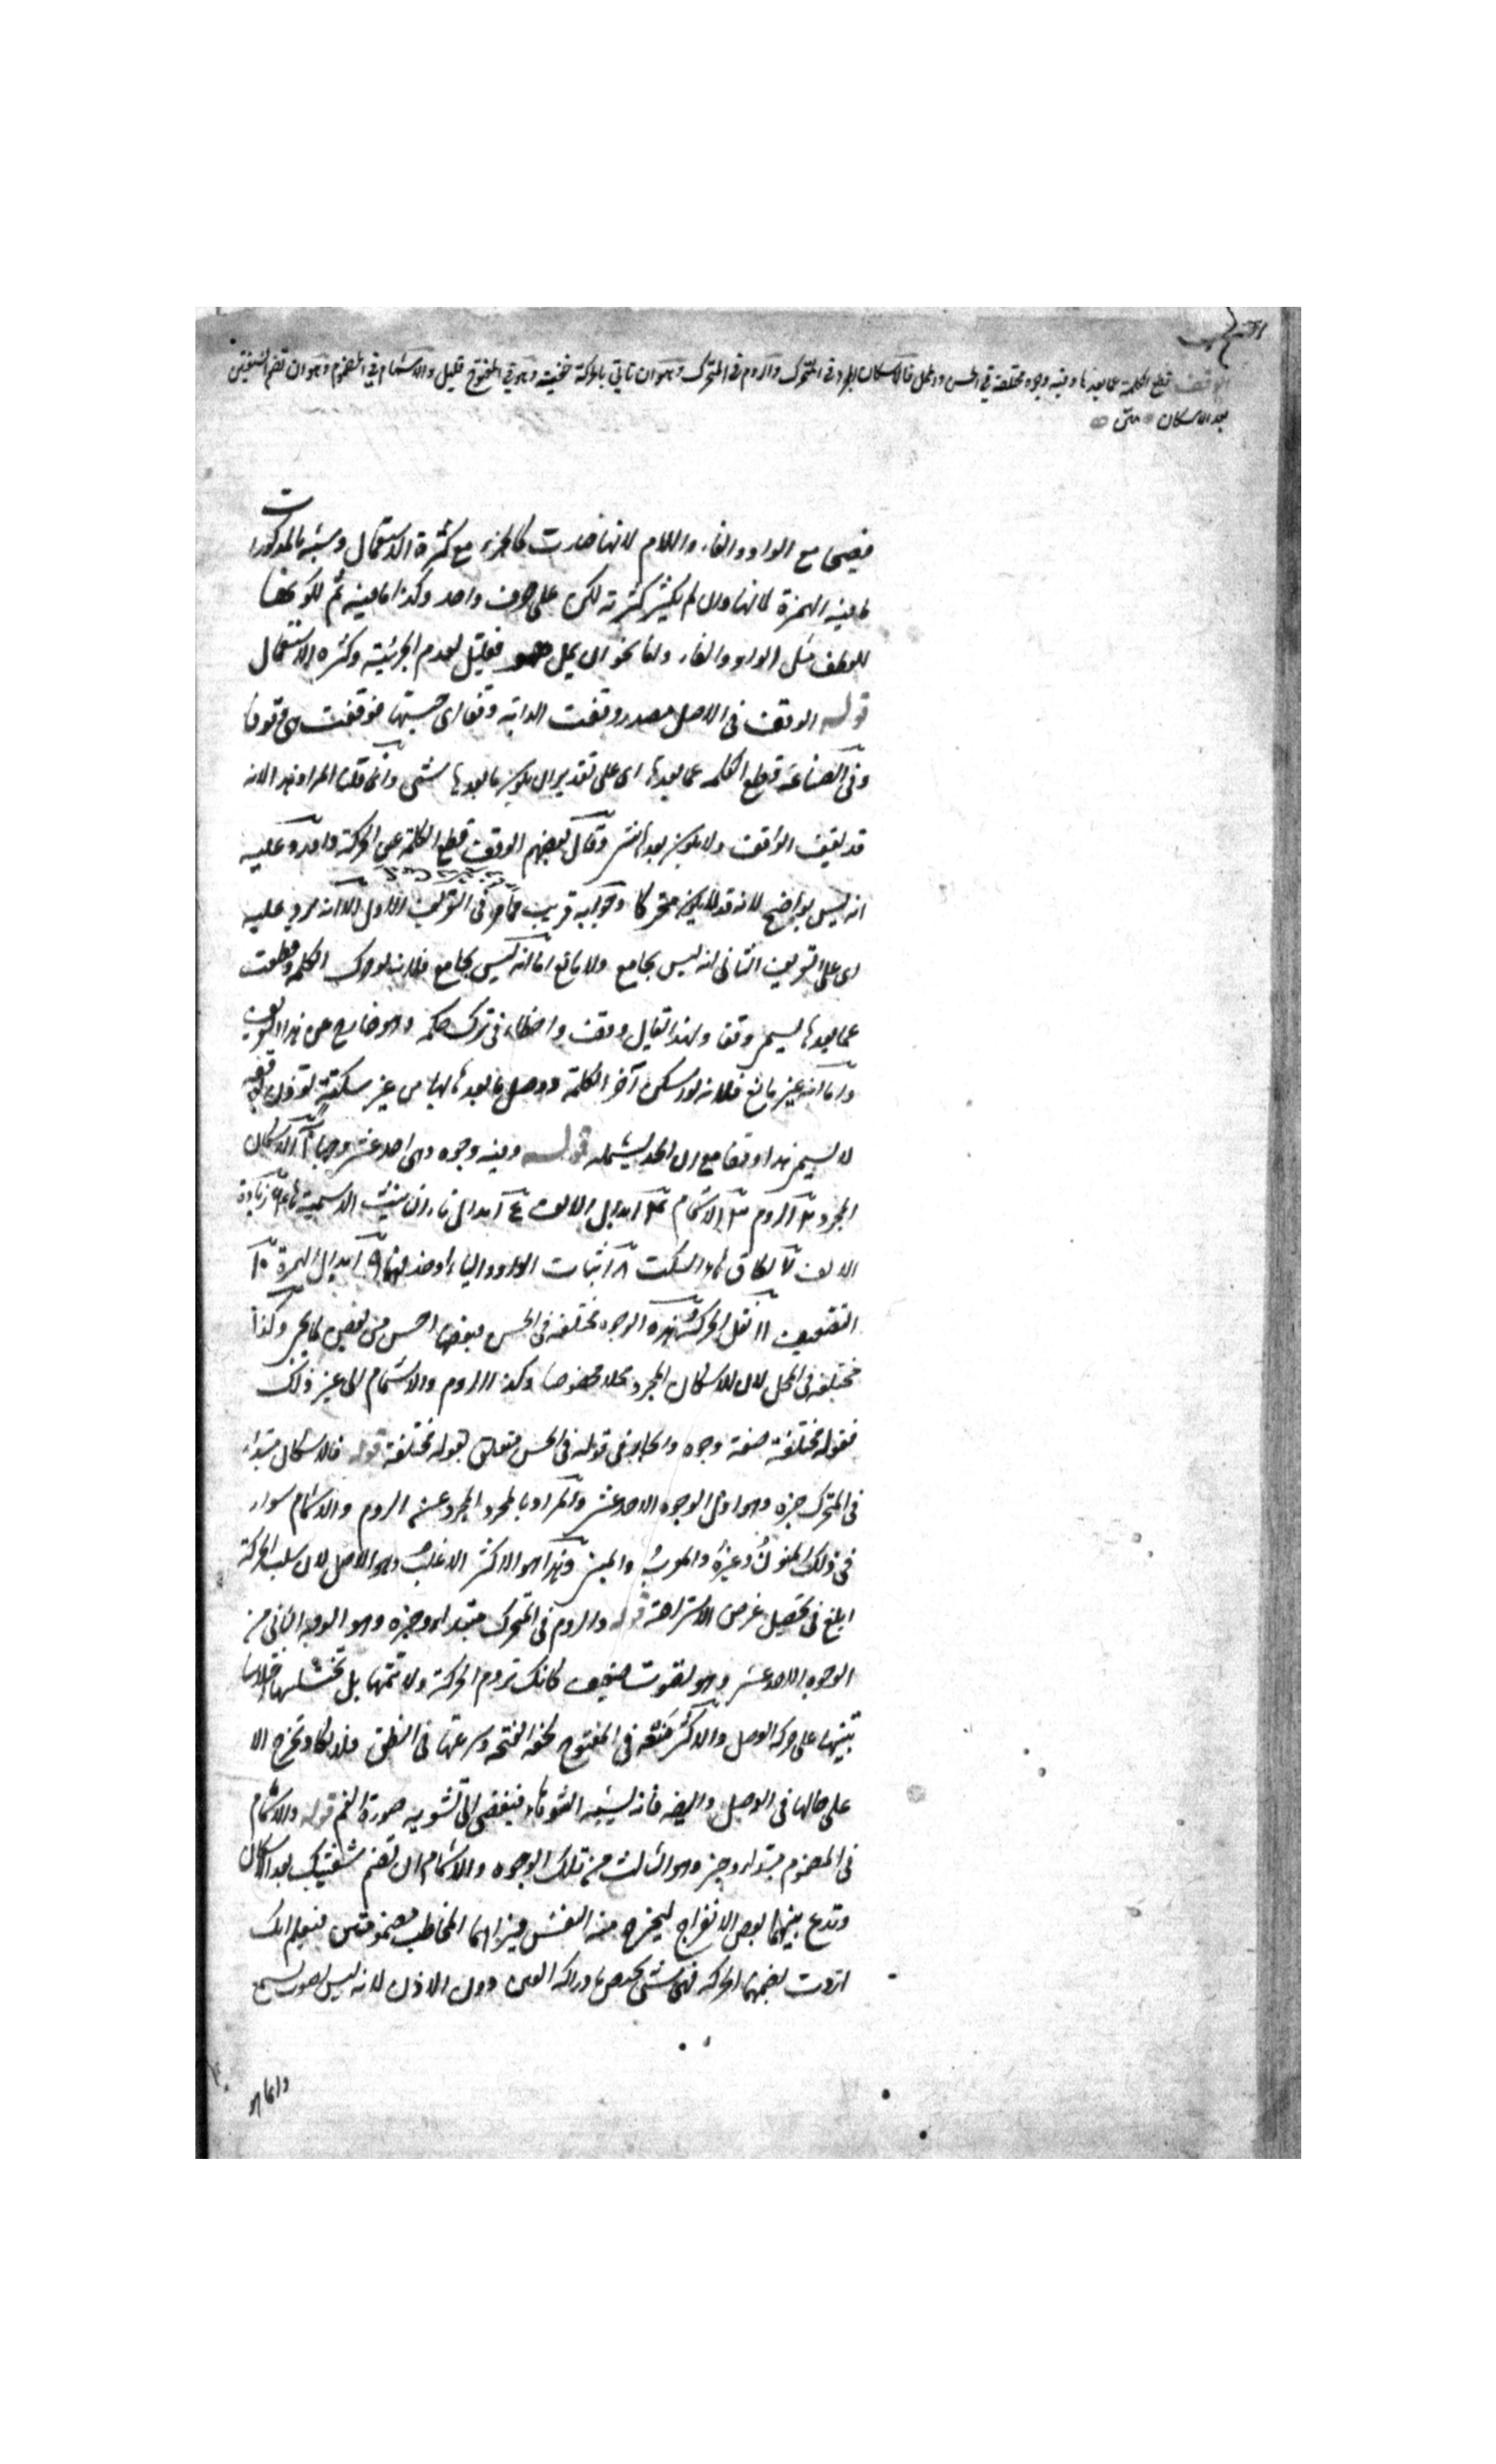 الوقف قطع الكلمة عما بعدها وفيه وجوه مختلفة في الحسن والمحل فالاسكان المجرد في المتحرك والروم في المتحرك وهو ان تاتي بالحركة خفية وهو في المفتوح قليل والاشمام في المضموم وهو ان تضم الشفتين
بعد الاسكان متن
فصيحا مع الواو والفاء واللام لانها صارت كالجزء مع كثرة الاستعمال وشبه بالمذكورات
ما فيه الهمزة لانها وان لم يكثر كثرته لكن على حرف واحد وكذا ما فيه ثم لكونها
للعطف مثل الواو والفاء واما نحو ان يمل هو فقليل لعدم الجزئية وكثرة الاستعمال
قوله الوقف في الاصل مصدر وقفت الدابة وقفا اى حبستها فوقفت هي وقوفا
وفي الصناعة قطع الكلمة عما بعدها اى على تقدير ان يكون بعدها شئ وانما قلنا المراد هذا لانه
قد يقف الواقف ولا يكون بعده شئ وقال بعضهم الوقف قطع الكلمة عن الحركة واورد عليه
انه ليس بواضح لانه قد لا يكون متحركا وجوابه قريب مما مر في التعريف الاول الا انه يرد عليه
اى على التعريف الثانى انه ليس بجامع ولا مانع اما انه ليس بجامع فلانه لو حرك الكلمة وقطعت
عما بعدها يسمى وقفا ولهذا يقال وقف واخطاء في ترك حكمه وهو خارج عن هذا التعريف
واما انه غير مانع فلانه لو اسكن آخر الكلمة ووصل بما بعدها لها من غير سكتة
لا يسمى هذا وقفا مع ان الحد يشمله قوله وفيه وجوه وهي احد عشر وجها ١ الاسكان
المجرد ٢ الروم ٣ الاشمام ٤ ابدال الالف ابدال تاء التانيث الاسمية هاء ٦ زيادة
الالف ٧ الحاق هاء السكت ٨ اثبات الواو والياء او حذفهما ٩ ابدال الهمزة ١٠
التضعيف ١١ نقل الحركة وهذه الوجوه مختلفة في الحسن فبعضها احسن من بعض كما يجئ وكذا
مختلفة في المحل لان للاسكان المجرد محلا مخصوصا وكذا الروم والاشمام الى غير ذلك
فقوله مختلفة صفة وجوه والجار في قوله في الحسن متعلق بقوله مختلفة قوله فالاسكان مبتداء
في المتحرك خبره وهو اول الوجوه الاحد عشر والمراد بالمجرد المجرد عن الروم والاشمام سواء
في ذلك المنون وغيره والمعرب والمبنى وهذا هو الاكثر الاغلب وهو الاصل لان سلب الحركة
ابلغ في تحصيل غرض الاستراحة قوله والروم في المتحرك مبتداء وخبره وهو الوجه الثاني من
الوجوه الاحد عشر وهو بصوت ضعيف كانك تروم الحركة ولا تتمها بل تختلسها اختلاسا
تنبيها على حركة الوصل والاكثر منعه في المفتوح لخفة الفتحة وسرعتها في النطق فلا تكاد تخرج الا
على حالها في الوصل وايضا فانه يشبه الثوباء فيفضى الى تشويه صورة الفم قوله والاشمام
في المضموم مبتداء وخبر وهو الثالث من تلك الوجوه والاشمام ان تضم شفتيك بعد الاسكان
وتدع بينهما بعض الانفراج ليخرج منه النفس فيراهما المخاطب مضمومتين فيعلم انك
اردت بضمهما الحركة فهى شئ يختص بادراكه العين دون الاذن لانه ليس بصوت يسمع
وانما هو